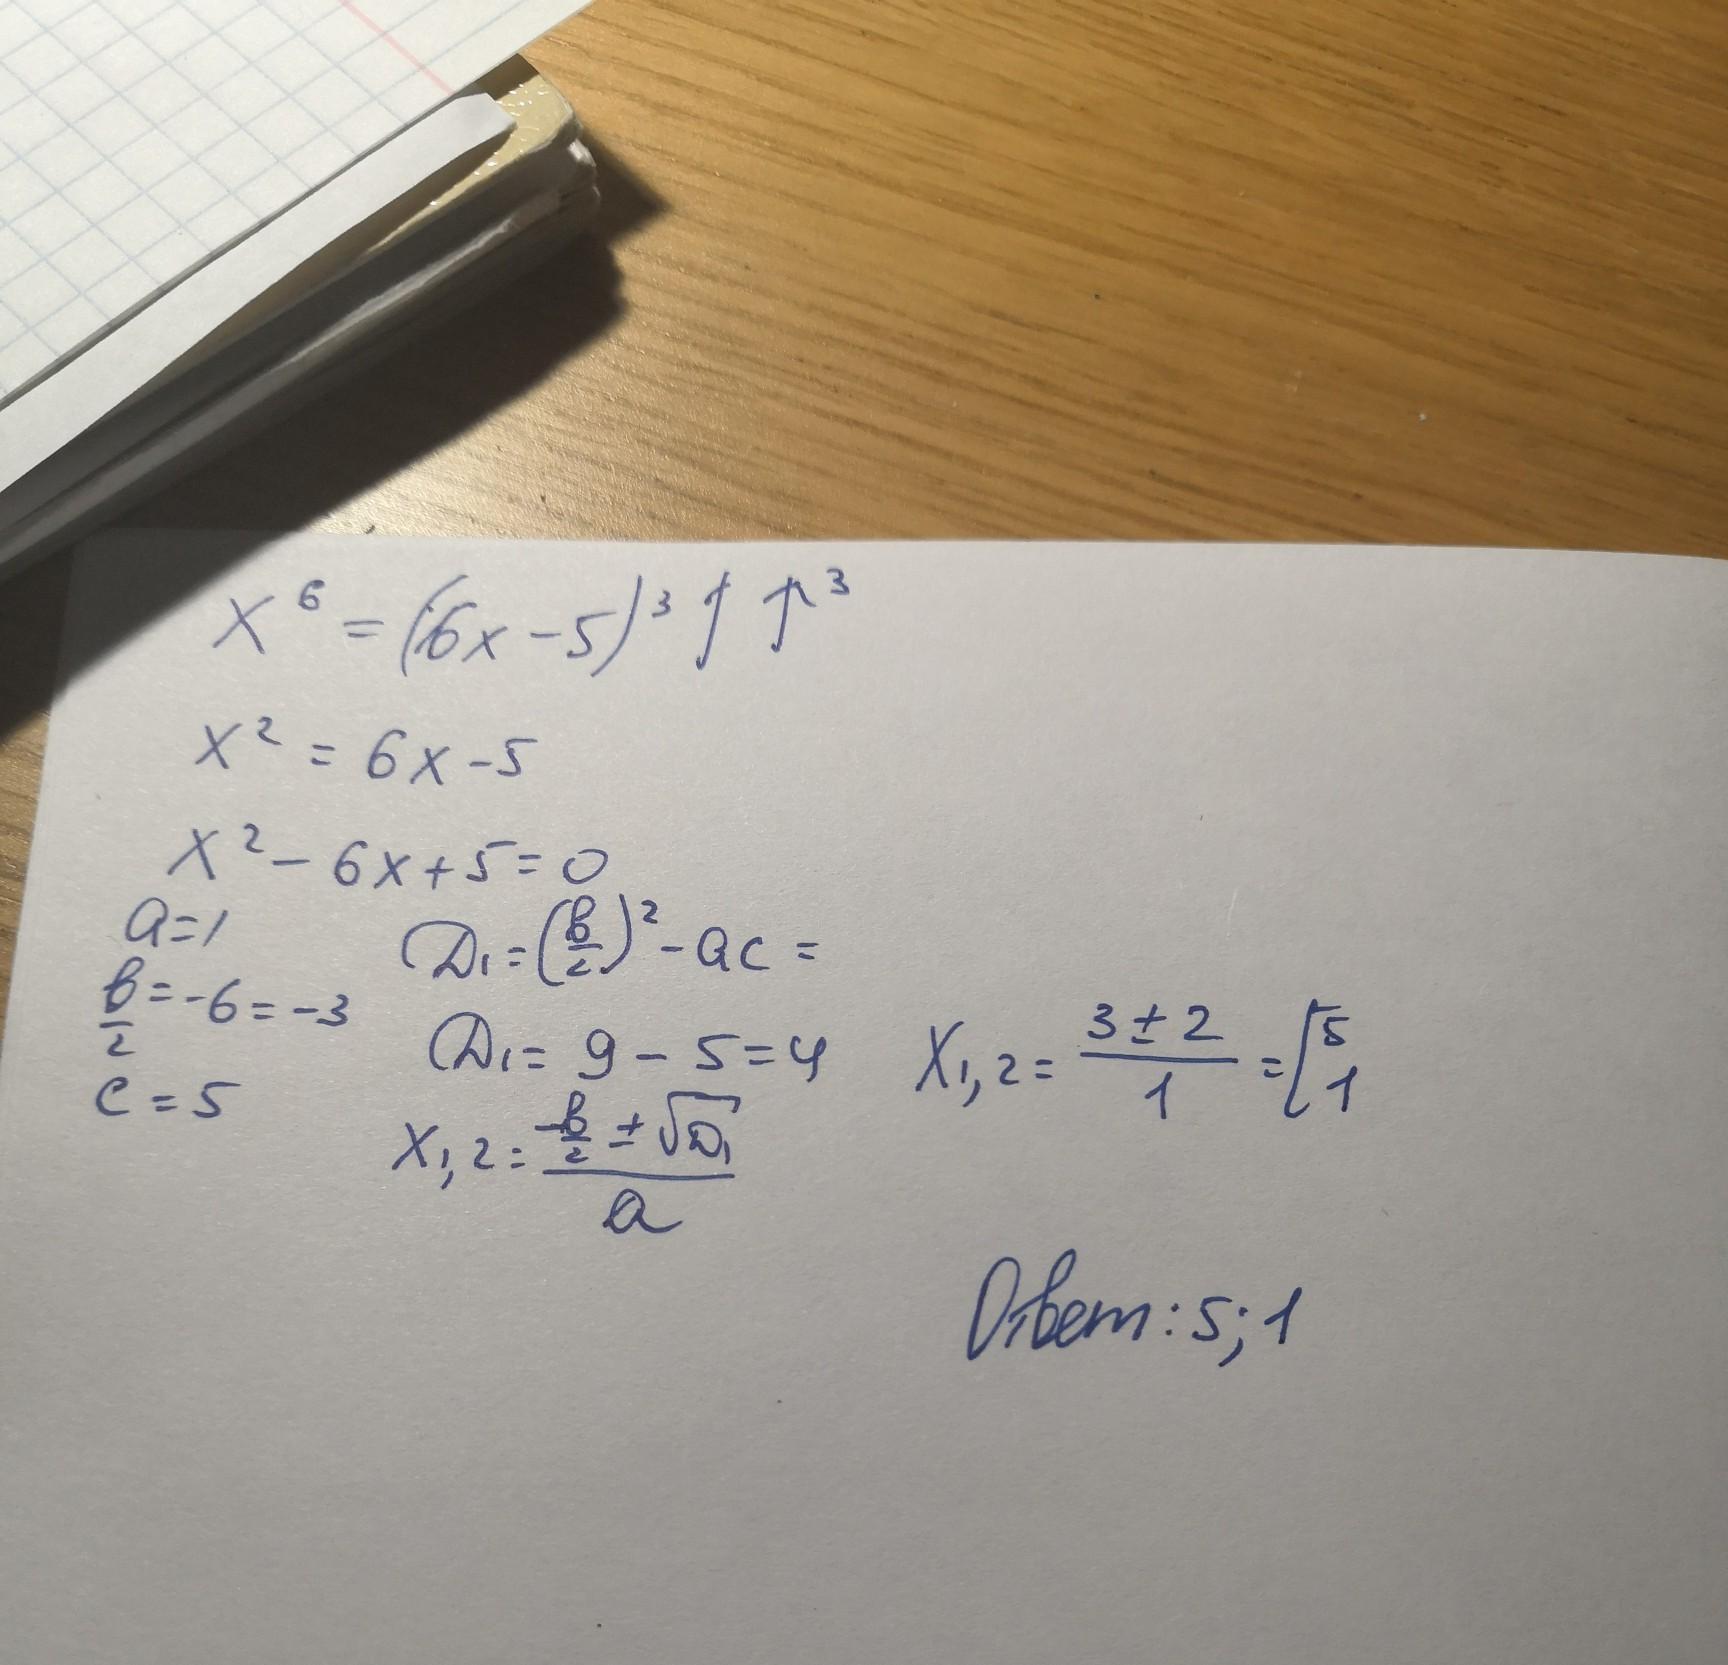 x⁶ = (6x – 5)³ ↑ ↑³
x² = 6x – 5
x² – 6x + 5 = 0
a = 1
b/2 = -6 = -3
c = 5
D₁ = (b/2)² – ac =
D₁ = 9 – 5 = 4
x₁,₂ = (-b/2 ± √D₁)/a
x₁,₂ = (3 ± 2)/1 = [5 1
Ответ: 5; 1